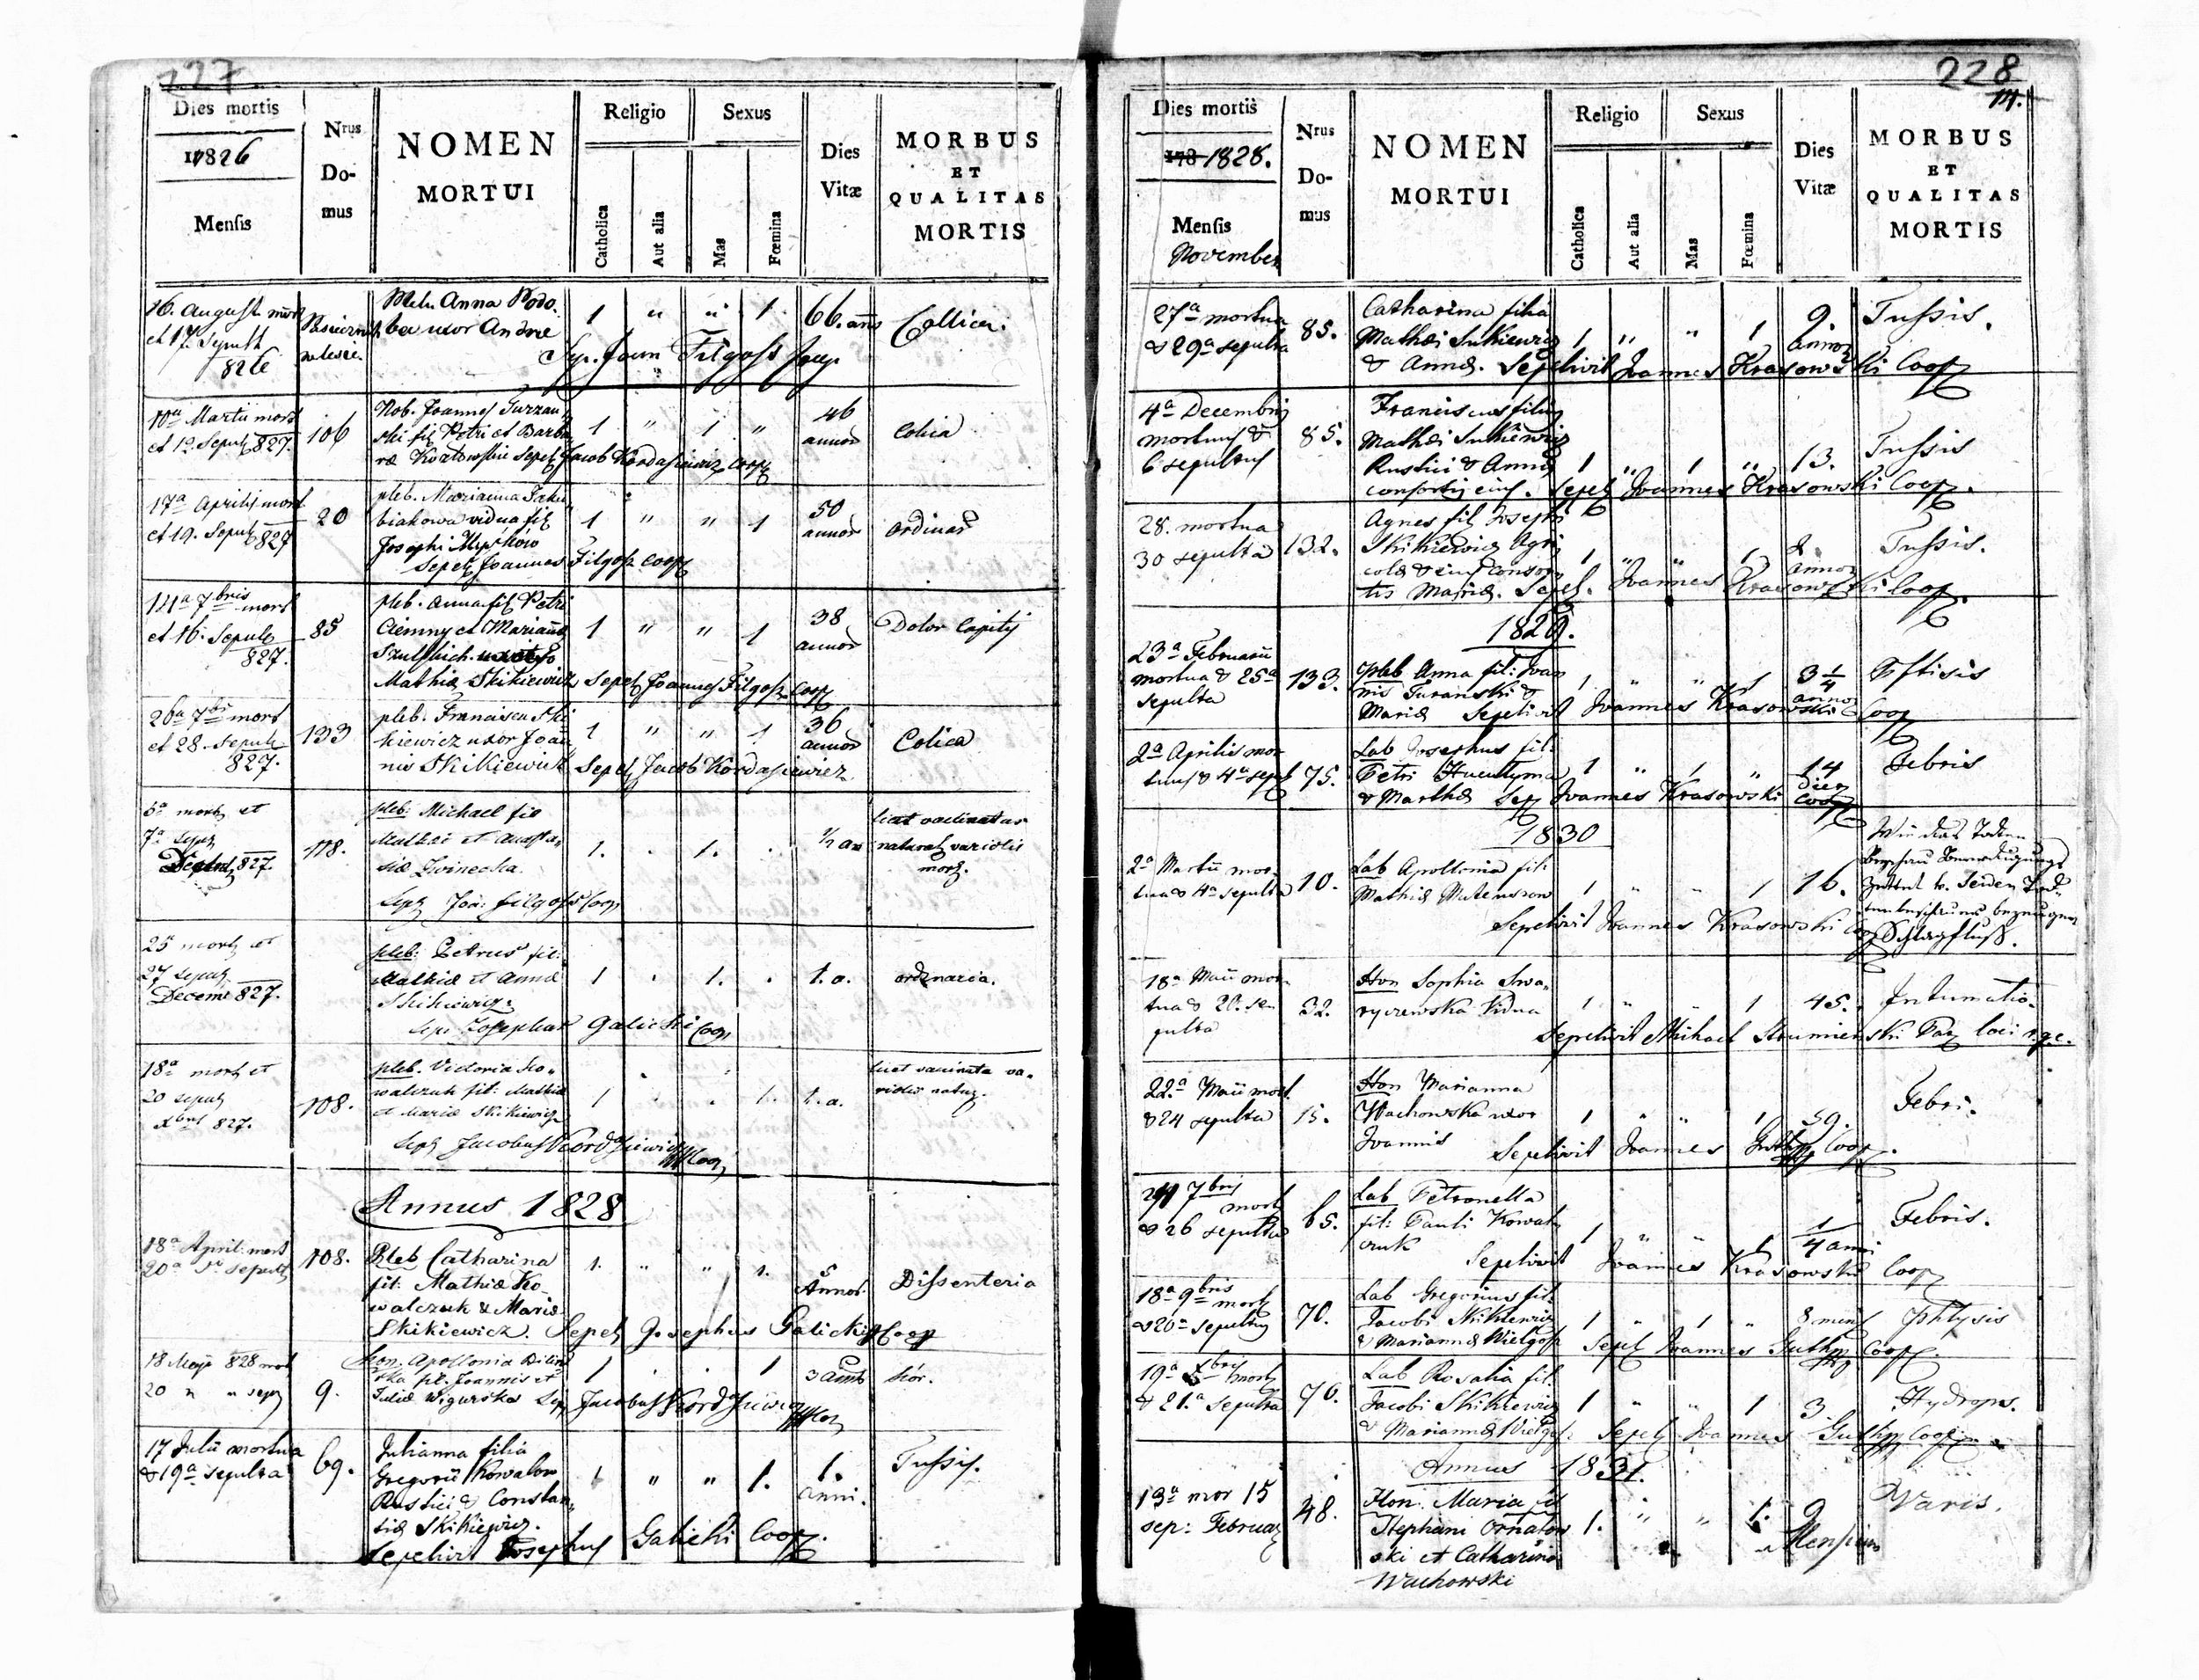 227
Dies mortis
1826
Mensis
Nrus
Do-
mus
NOMEN
MORTUI
Religio
Catholica
Aut alia
Sexus
Mas
Fœmina
Dies
Vitæ
MORBUS
ET
QUALITAS
MORTIS
16. August
et 17. Sepult
826
Anna
uxor Andre
1 " " 1
66.
Collica.
Sep. Joan Filgoss
10a Martii mort
et 12 Sepul 827.
106
Nob. Joannes
fil Petri et Barba
ræ Sepel Jacob Kordasiewicz Coop
1 " 1 "
46
annor
Colica
17a Aprilis mort
et 19. Sepul 827
20
pleb. Marianna Jaku
biakowa vidua fil
Josephi
Sepel Joannes Filgoss Coop
1 " " 1
50
annor
ordinar
14a 7bris mort
et 16. Sepul
827.
85
pleb. Anna fil Petri
Ciemny et Mariannæ
Mathiæ Skikiewicz Sepel Joannes Filgoss Coop
1 " " 1
38
annor
Dolor Capitis
26a 7bris mort
et 28. Sepul
827.
133
pleb. Francisca Ski
kiewicz uxor Joan
nis Skikiewicz Sepel Jacob Kordasiewicz
1 " " 1
36
annor
Colica
5a mort et
7a Sepul
827.
118.
pleb. Michael fil
Mathæi et
siæ
Sepel Joa: Filgoss Coop
1. . 1. .
1/2 an
licet vaccinatus
natural variolis
mort.
25 mort et
27 Sepul
Decemb 827.
pleb: Petrus fil:
Mathiæ et Annæ
Skikiewicz
Sepe Josephus Galicki Coop
1 . 1. .
1. a.
ordinaria.
18a mort et
20 sepul
xbris 827.
108.
pleb. Victoria Ko-
walczuk fil: Mathiæ
et Mariæ Skikiewicz
Sepel Jacobus Kordasiewicz Coop
1 . . 1.
1. a.
licet vaccinata va-
riolis natur.
Annus 1828
18a April. mort
20a sepult
108.
Pleb Catharina
fil: Mathiæ Ko-
walczuk & Mariæ
Skikiewicz. Sepel Josephus Galicki Coop
1. " " 1.
5
Annor.
Dissenteria
18 Maji 828 mort
20 " " sepul
9.
Hon. Apollonia
ska fil. Joannis et
Juliæ Sep Jacobus Kordasiewicz Coop
1 . . 1
3
17 Julii mortua
& 19a sepulta
69.
Julianna filia
Gregorii Kowalow
Rustici & Constan-
tiæ Skikiewicz.
Sepelivit Josephus Galicki Coop.
1 " " 1.
1.
anni.
Tussis.
228
Dies mortis
1828.
Mensis
November
Nrus
Do-
mus
NOMEN
MORTUI
Religio
Catholica
Aut alia
Sexus
Mas
Fœmina
Dies
Vitæ
MORBUS
ET
QUALITAS
MORTIS
27a mortua
& 29a sepulta
85.
Catharina filia
Mathæi Skikiewicz
& Annæ. Sepelivit Joannes Krasowski Coop
1 " " 1
9.
annor
Tussis.
4a Decembris
mortuus &
6 sepultus
85.
Franciscus filius
Mathæi Skikiewicz
Rustici & Annæ
consortis eius. Sepel Joannes Krasowski Coop.
1 " 1 "
13.
Tussis
28. mortua
30 sepulta
132.
Agnes fil Josephi
Skikiewicz Agri-
colæ & eius Consor-
tis Mariæ. Sepel. Joannes Krasowski Coop.
1 " " 1
2
annor
Tussis.
1829.
23a Februarii
mortua & 25a
sepulta
133.
pleb Anna fil: Joan
nis Turanski &
Mariæ Sepelivit Joannes Krasowski Coop
1 " " 1
3 1/4
annor
Pftisis
2a Aprilis mor
tuus & 4a sepul
75.
Lab Josephus fil:
Petri
& Marthæ Sep Joannes Krasowski Coop
1 " 1 "
14
dier
Febris
1830
2a Martii mor-
tua & 4a sepulta
10.
Lab Apollonia fil:
Mathiæ
Sepelivit Joannes Krasowski Coop
1 " " 1
16.
Schlagfluß.
18a Maii mor-
tua & 20. se-
pulta
32.
Hon Sophia Swa-
ryczewska Vidua
Sepelivit Michael Strumienski Par loci
1 " " 1
45.
22a Maii mort.
& 24 sepulta
15.
Hon Marianna
Wachowska uxor
Joannis
Sepelivit Joannes Coop.
1 " " 1
59.
Febri.
24 7bris
mort
& 26 sepulta
65.
Lab Petronella
fil: Pauli Kowal-
czuk
Sepelivit Joannes Krasowski Coop
1 " " 1
1/4 anni
Febris.
18a 9bris
mort
& 20a sepultus
70.
Lab Gregorius fil:
Jacobi Skikiewicz
& Mariannæ Wielgoss Sepel Joannes Coop.
1 " 1 "
8 mens
Phtysis
19a xbris mort
& 21.a sepulta
70.
Lab Rosalia fil.
Jacobi Skikiewicz
& Mariannæ Wielgos: Sepel Joannes Coop
1 " " 1
3
Hydrops.
Annus 1831.
13a mor 15
sep: Februar
48.
Hon. Maria fil
Stephani Ornatow
ski et Catharinæ
Wachowski
1. " " 1.
9
Mensium
Varis.